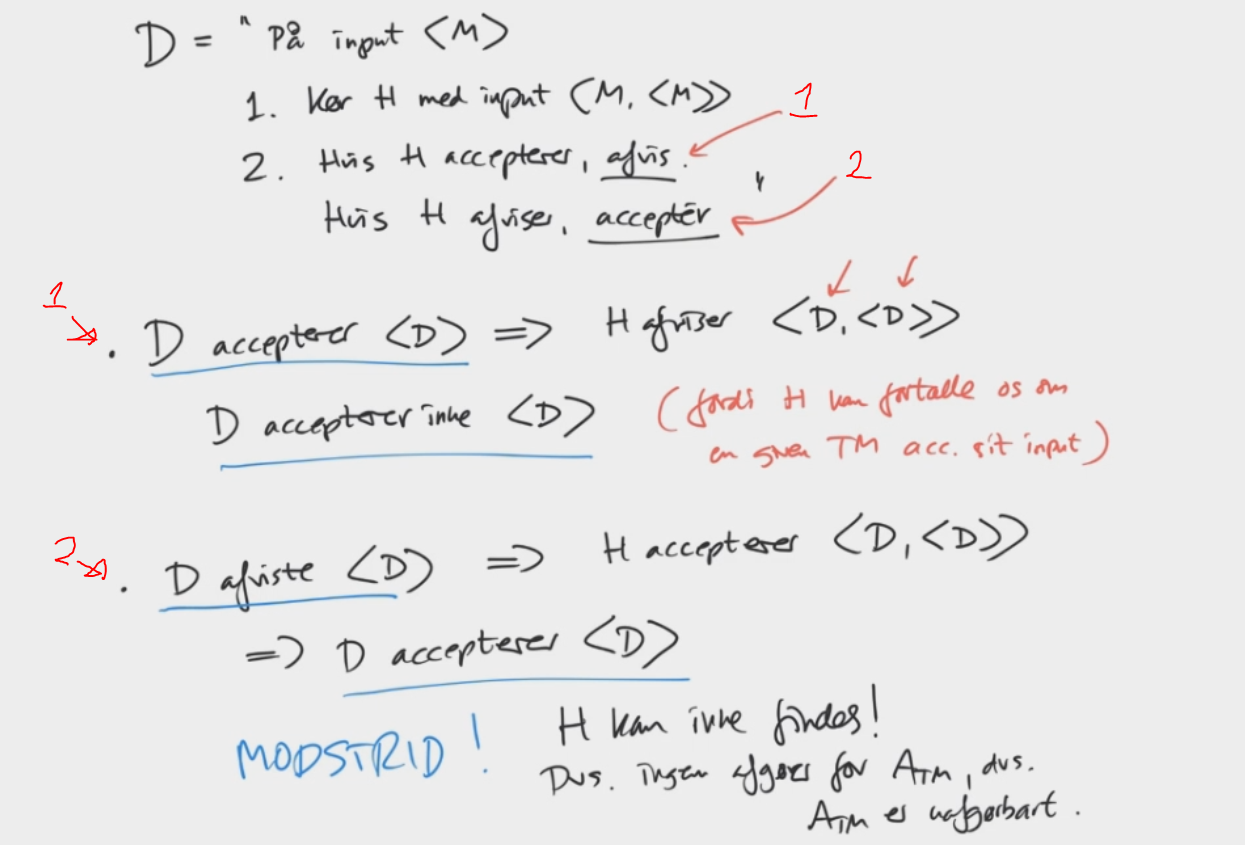 D = " På input <M>
1. Kør H med input <M, <M>>
1
2. Hvis H accepterer, afvis.
2
Hvis H afviser, acceptér "
1
. D accepterer <D> => H afviser <D, <D>>
D accepterer ikke <D> (fordi H kan fortælle os om
en given TM acc. sit input)
2
. D afviste <D> => H accepterer <D, <D>>
=> D accepterer <D>
MODSTRID! H kan ikke findes!
Dvs. ingen afgører for ATM, dvs.
ATM er uafgørbart.